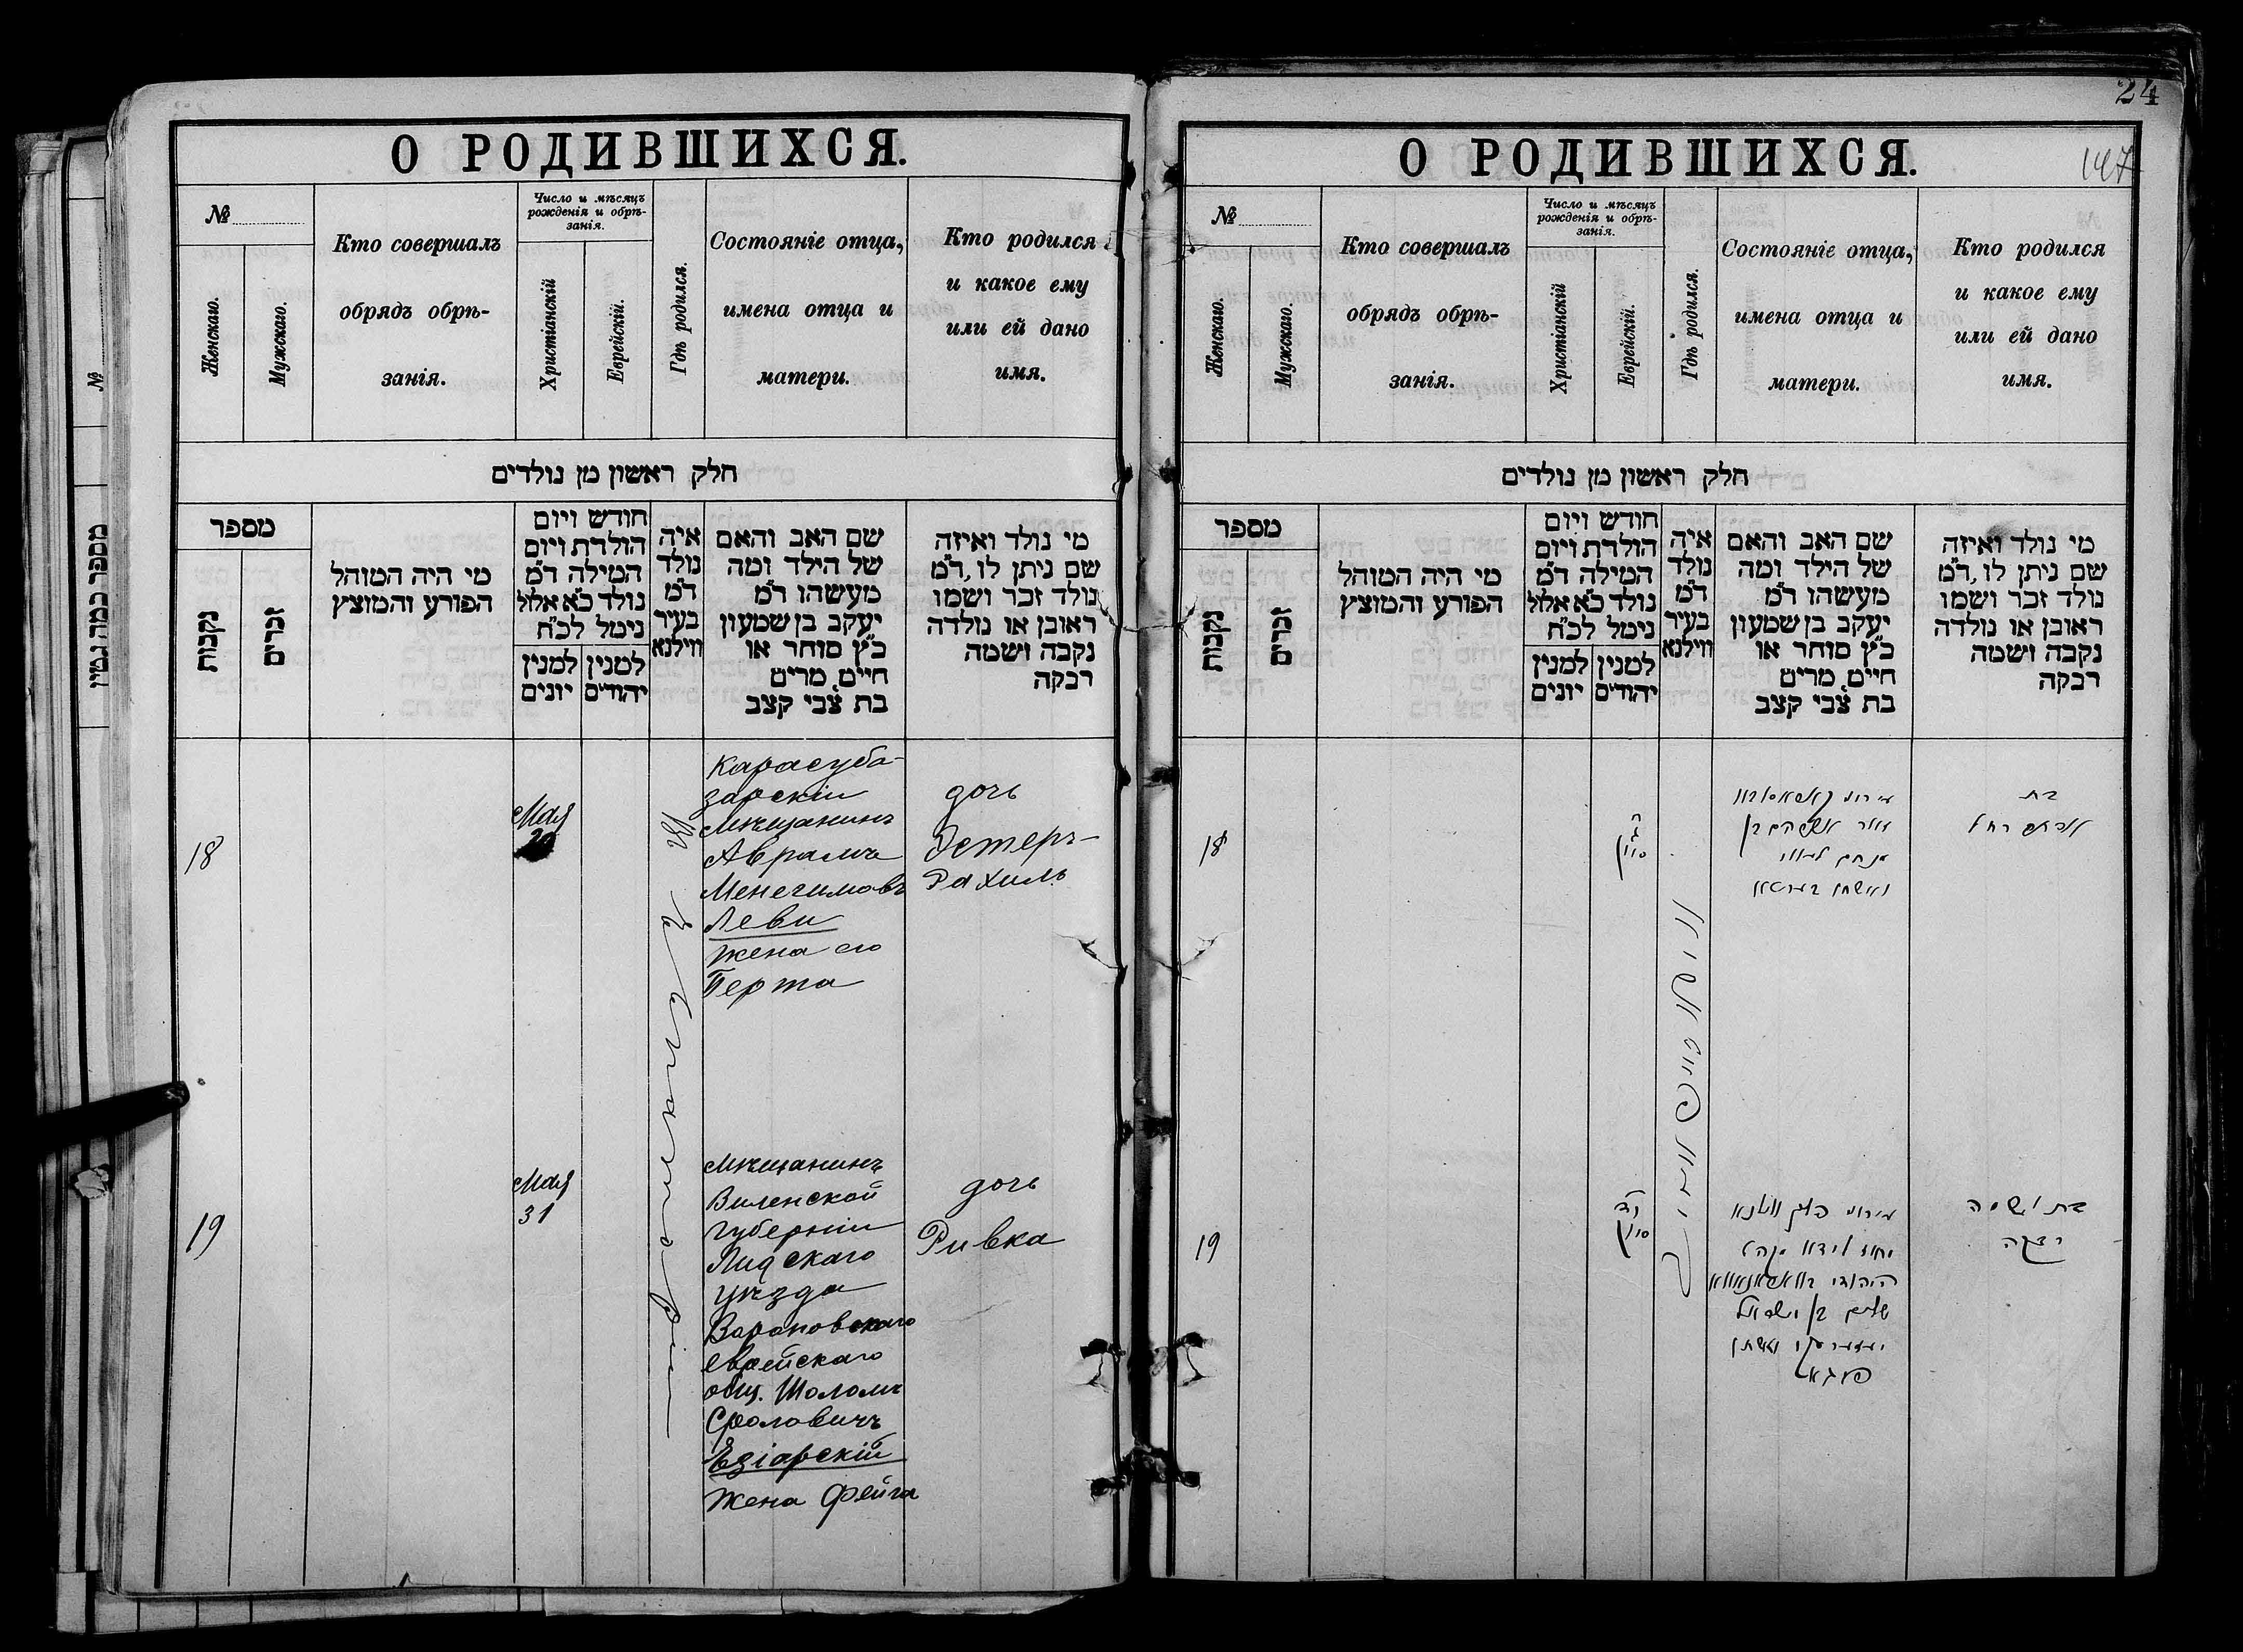 О РОДИВШИХСЯ.
№
Женскаго.
Мужскаго.
Кто совершалъ
обрядъ обрѣ-
занія.
Число и мѣсяцъ
рожденія и обрѣ-
занія.
Христіанскій
Еврейскій.
Гдѣ родился.
Состояніе отца,
имена отца и
матери.
Кто родился
и какое ему
или ей дано
имя.
חלק ראשון מן נולדים
מספר
נקבות
זכרים
מי היה המוהל
הפורע והמוצץ
חודש ויום
הולדת ויום
המילה ד״מ
נולד כ״א אלול
נימל לכ״ח
למנין למנין
יהודים יונים
איה
נולד
ד״מ
בעיר
ווילנא
שם האב והאם
של הילד ומה
מעשהו ד״מ
יעקב בן שמעון
כ״ץ סוחר או
חיים, מרים
בת צבי קצב
מי נולד ואיזה
שם ניתן לו, ד״מ
נולד זכר ושמו
ראובן או נולדה
נקבה ושמה
רבקה
18
Мая
Карасуба-
зарскій
Мѣщанинъ
Аврамъ
Менегимовъ
Леви
жена его
Берта
дочь
Эстеръ-
Рахиль
19
Мая
31
Мѣщанинъ
Виленской
губерніи
Лидскаго
уѣзда
Вороновскаго
еврейскаго
общ. Шоломъ
Сроловичъ
Езіарскій
жена Фейга
дочь
Ривка
24
147
О РОДИВШИХСЯ.
№
Женскаго.
Мужскаго.
Кто совершалъ
обрядъ обрѣ-
занія.
Число и мѣсяцъ
рожденія и обрѣ-
занія.
Христіанскій
Еврейскій.
Гдѣ родился.
Состояніе отца,
имена отца и
матери.
Кто родился
и какое ему
или ей дано
имя.
חלק ראשון מן נולדים
מספר
נקבות
זכרים
מי היה המוהל
הפורע והמוצץ
חודש ויום
הולדת ויום
המילה ד״מ
נולד כ״א אלול
נימל לכ״ח
למנין למנין
יהודים יונים
איה
נולד
ד״מ
בעיר
ווילנא
שם האב והאם
של הילד ומה
מעשהו ד״מ
יעקב בן שמעון
כ״ץ סוחר או
חיים, מרים
בת צבי קצב
מי נולד ואיזה
שם ניתן לו, ד״מ
נולד זכר ושמו
ראובן או נולדה
נקבה ושמה
רבקה
18
סיון
מנחם לעווי
בת
אסתר רחל
19
סיון
שלום בן ישראל
פייגא
בת ושמה
רבקה